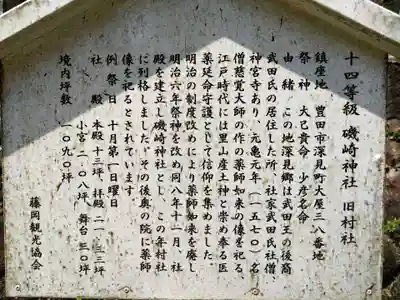 十四等級 磯崎神社 旧村社
鎮座地 豊田市深見町大屋三八番地
祭神 大己貴命 少彦名命
由緒 この地深見郷は武田王の後裔
武田氏の居住した所、社家武田氏社僧、
神宮寺あり、元亀元年(一五七〇)名
僧慈覚大師の作の薬師如来の像を祀る
江戸時代には里山産土神と崇め奉る医
薬延命守護として信仰を集めました。
明治の制度改めにより薬師如来を廃し
明治六年祭神を改め同八年十一月、社
殿を建立し磯崎神社とし、この年村社
に列格しました。その後奥の院に薬師
像を祀るとされています。
例祭日 十月第一日曜日
社殿 本殿十三坪、拝殿二一・三坪
小宮二・〇八坪、舞台三〇坪
境内坪数 一〇九〇坪
藤岡観光協会